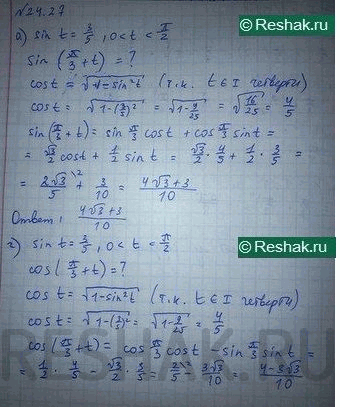 №24.27
Reshak.ru
а) sin t = 3/5, 0 < t < π/2
sin (π/3 + t) = ?
cos t = √(1 - sin²t) (т.к. t ∈ I четверти)
cos t = √(1 - (3/5)²) = √(1 - 9/25) = √(16/25) = 4/5
sin (π/3 + t) = sin π/3 cos t + cos π/3 sin t =
= √3/2 cos t + 1/2 sin t = √3/2 · 4/5 + 1/2 · 3/5 =
= 2√3/5 \2 + 3/10 = (4√3 + 3)/10
Ответ: (4√3 + 3)/10
г) sin t = 3/5, 0 < t < π/2
Reshak.ru
cos (π/3 + t) = ?
cos t = √(1 - sin²t) (т.к. t ∈ I четверти)
cos t = √(1 - (3/5)²) = √(1 - 9/25) = 4/5
cos (π/3 + t) = cos π/3 cos t - sin π/3 sin t =
= 1/2 · 4/5 - √3/2 · 3/5 = 2/5 \2 - 3√3/10 = (4 - 3√3)/10
RESHAK.RU